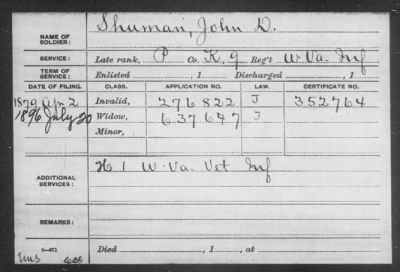 NAME OF SOLDIER: Shuman, John D.
SERVICE: Late rank, P Co. K, 9 Reg't W. Va. Inf
TERM OF SERVICE: Enlisted , 1 Discharged , 1
DATE OF FILING. CLASS. APPLICATION NO. LAW. CERTIFICATE NO.
1879 Apr 2 Invalid, 276822 J 352764
1896 July 20 Widow, 637647 J
Minor,
ADDITIONAL SERVICES: H 1 W. Va. Vet Inf
REMARKS:
Died , 1 , at